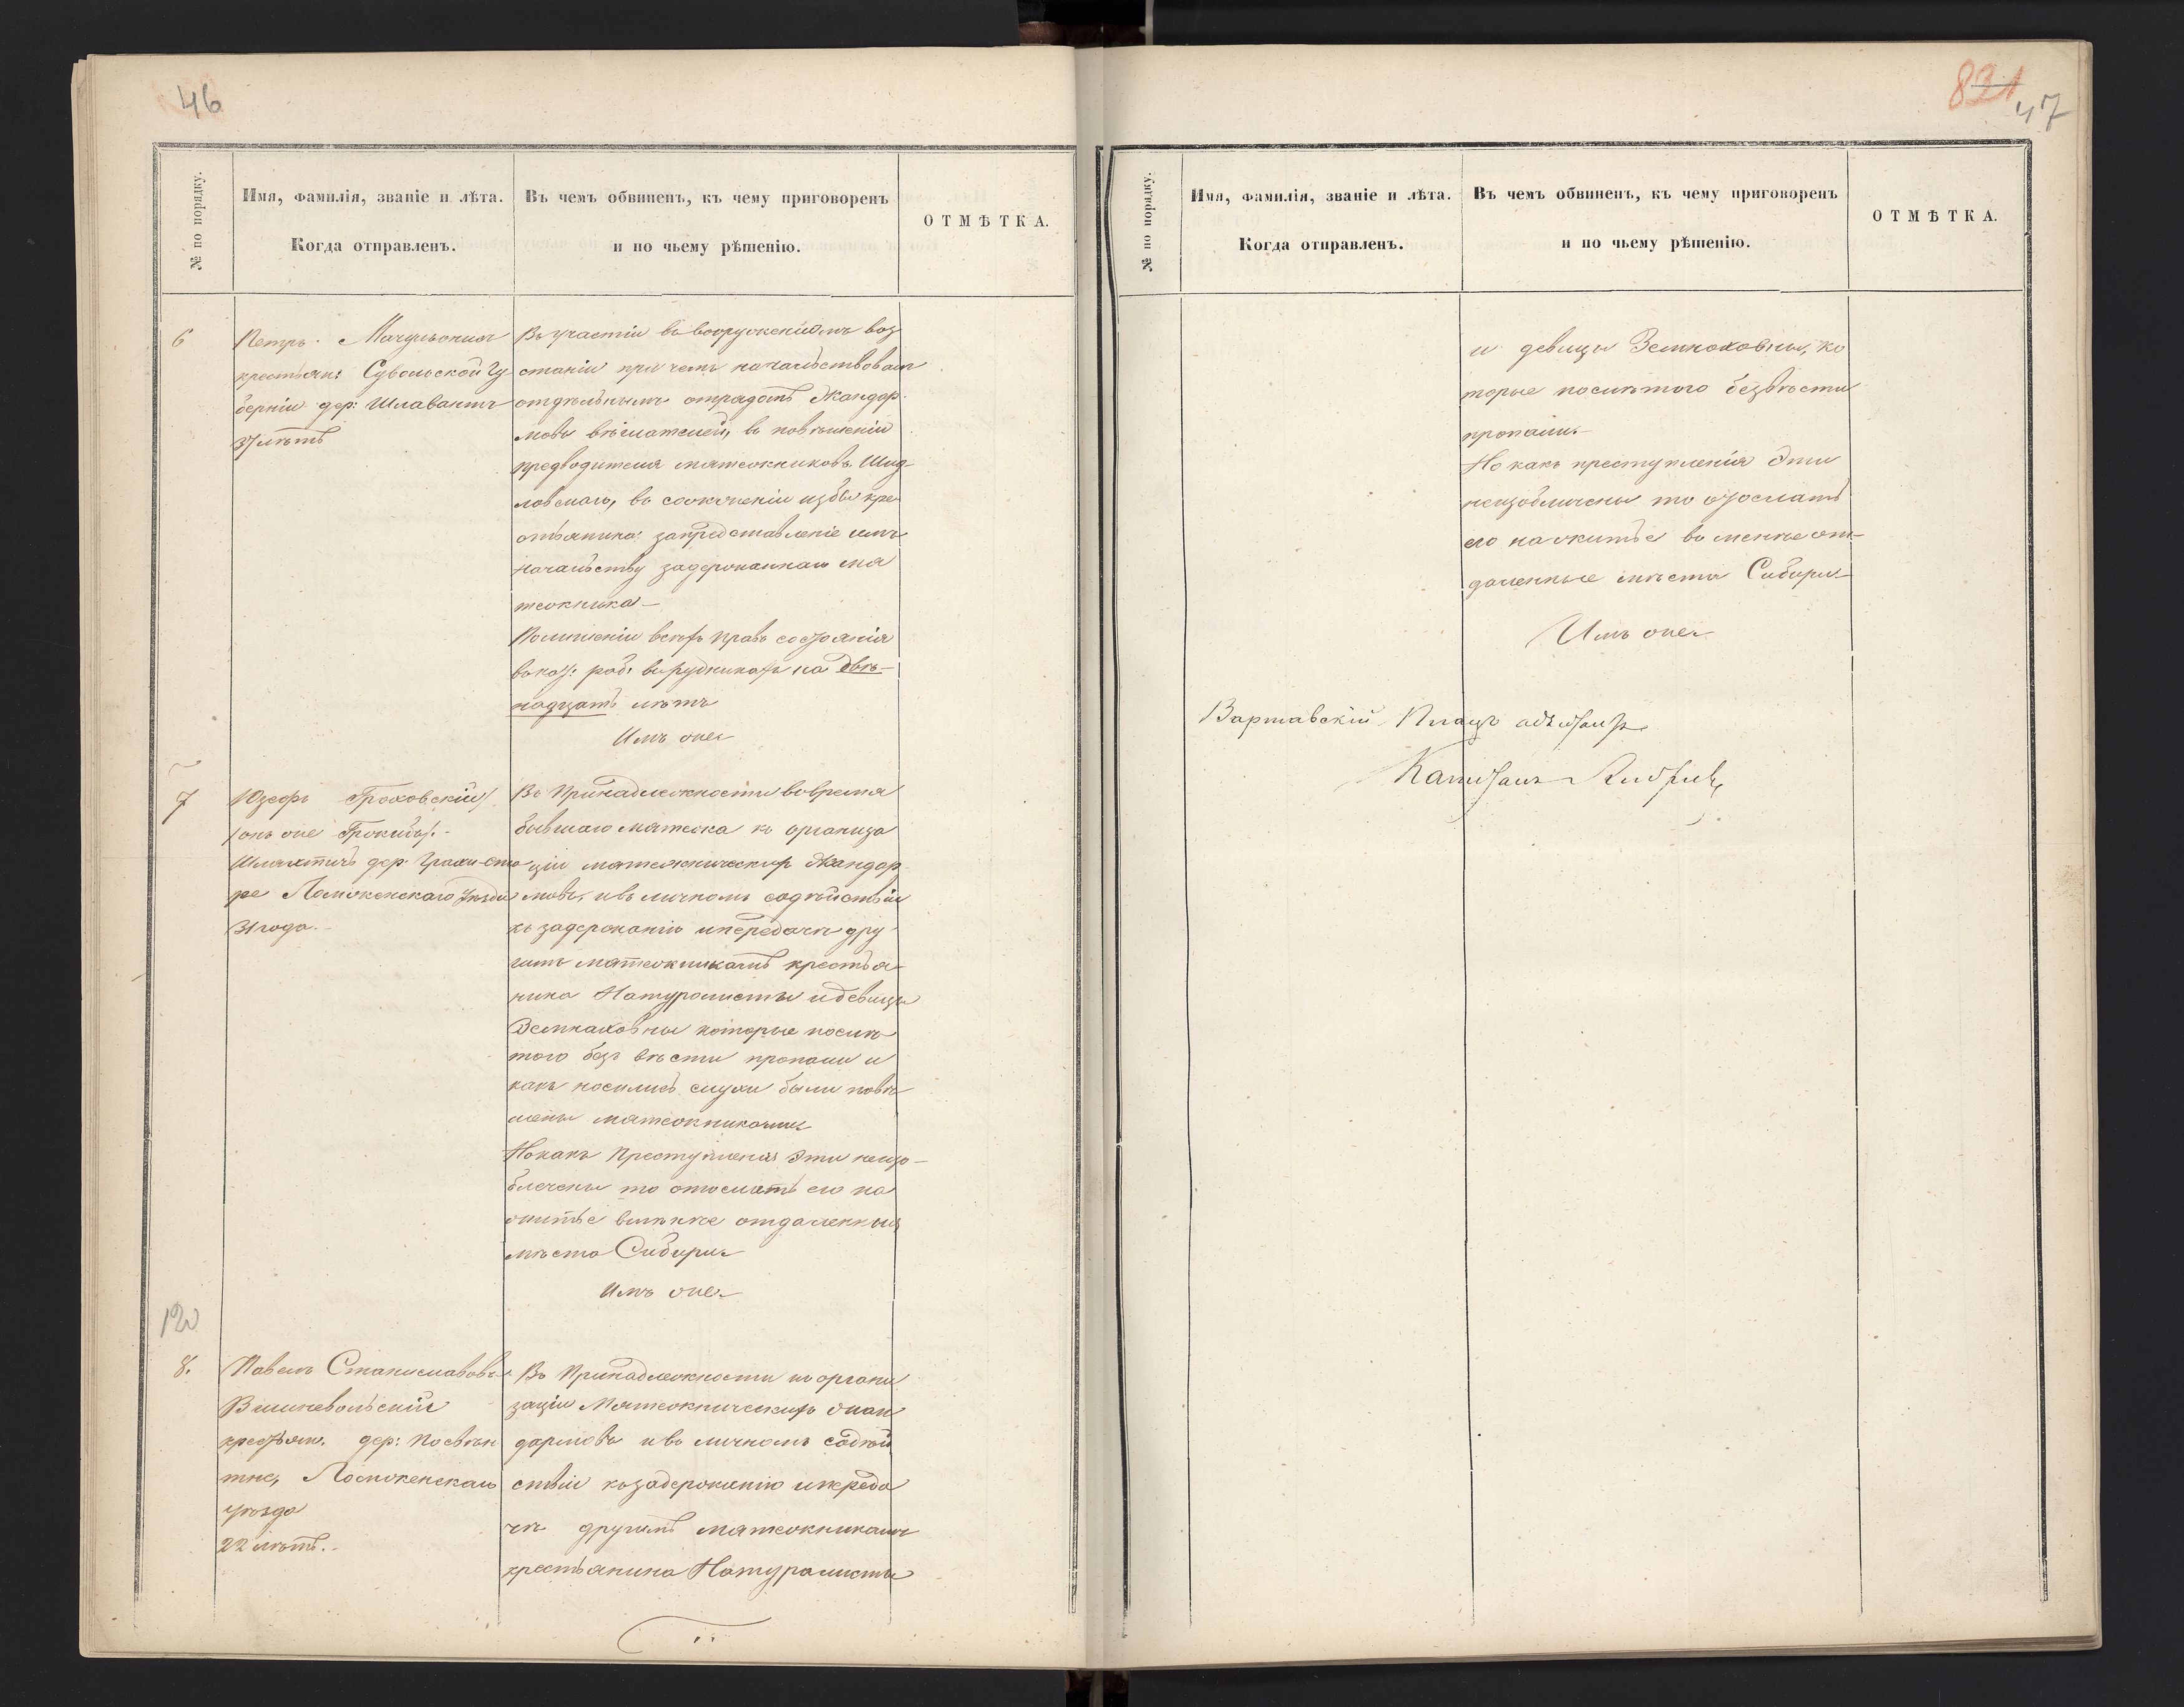 46
№ по порядку.
Имя, фамилія, званіе и лѣта.
Когда отправленъ.
Въ чемъ обвиненъ, къ чему приговоренъ
и по чьему рѣшенію.
ОТМѢТКА.
6
Петръ
крестьян: Сувалской Гу
берніи дер: Шлавантъ
37 лѣтъ
Въ участіи въ вооруженномъ воз
станіи при чемъ начальствовалъ
отдѣльнымъ отрядомъ Жандар
мовъ вѣшателей, въ повѣшеніи
предводителя мятежниковъ Шид
ловскаго, въ сожженіи избы кре
стьянина: запредставленіе имъ
начальству задержаннаго мя
тежника —
Полишеніи всѣхъ правъ состоянія
вкат: раб: въ рудникахъ на двѣ-
надцать лѣтъ
Имъ оне
7
Юзефъ Гроховскій/
/онъ же
Шляхтичъ дер: Грохи-ста
ре Ломженскаго Уѣзда
31 года.-
Въ Принадлежности вовремя
бывшаго мятежа къ организа
ціи мятежническихъ Жандар
мовъ, ивъ личномъ содѣйствіи
къ задержанію ипередачѣ дру
гимъ мятежникамъ крестья
нина Натуралисты идевицы
Земнаховны которые послѣ
того безъ вѣсти пропали и
какъ носились слухи были повѣ
шены мятежниками
Нокакъ Преступленія эти неизо-
бличены то отослать его на
житье вменѣе отдаленныя
мѣста Сибири
Имъ оне
120
8.
Павелъ Станиславовъ
крестьян. дер:
Ломженскаго
уѣзда
22 лѣтъ.-
Въ Принадлежности къ органи
заціи Мятежническихъ жан
дармовъ ивъ личномъ содѣй
ствіи къзадержанію ипереда
чѣ другимъ мятежникамъ
крестьянина Натуралисты
831
47
№ по порядку.
Имя, фамилія, званіе и лѣта.
Когда отправленъ.
Въ чемъ обвиненъ, къ чему приговоренъ
и по чьему рѣшенію.
ОТМѢТКА.
и девицы Земнаховны, ко
торые послѣтого безвѣсти
пропали.-
Но какъ преступленія эти
неизобличены то отослать
его нажитье въ менѣе от-
даленные мѣста Сибири
Имъ оне
Варшавскій Плацъ адъютантъ
Капитанъ